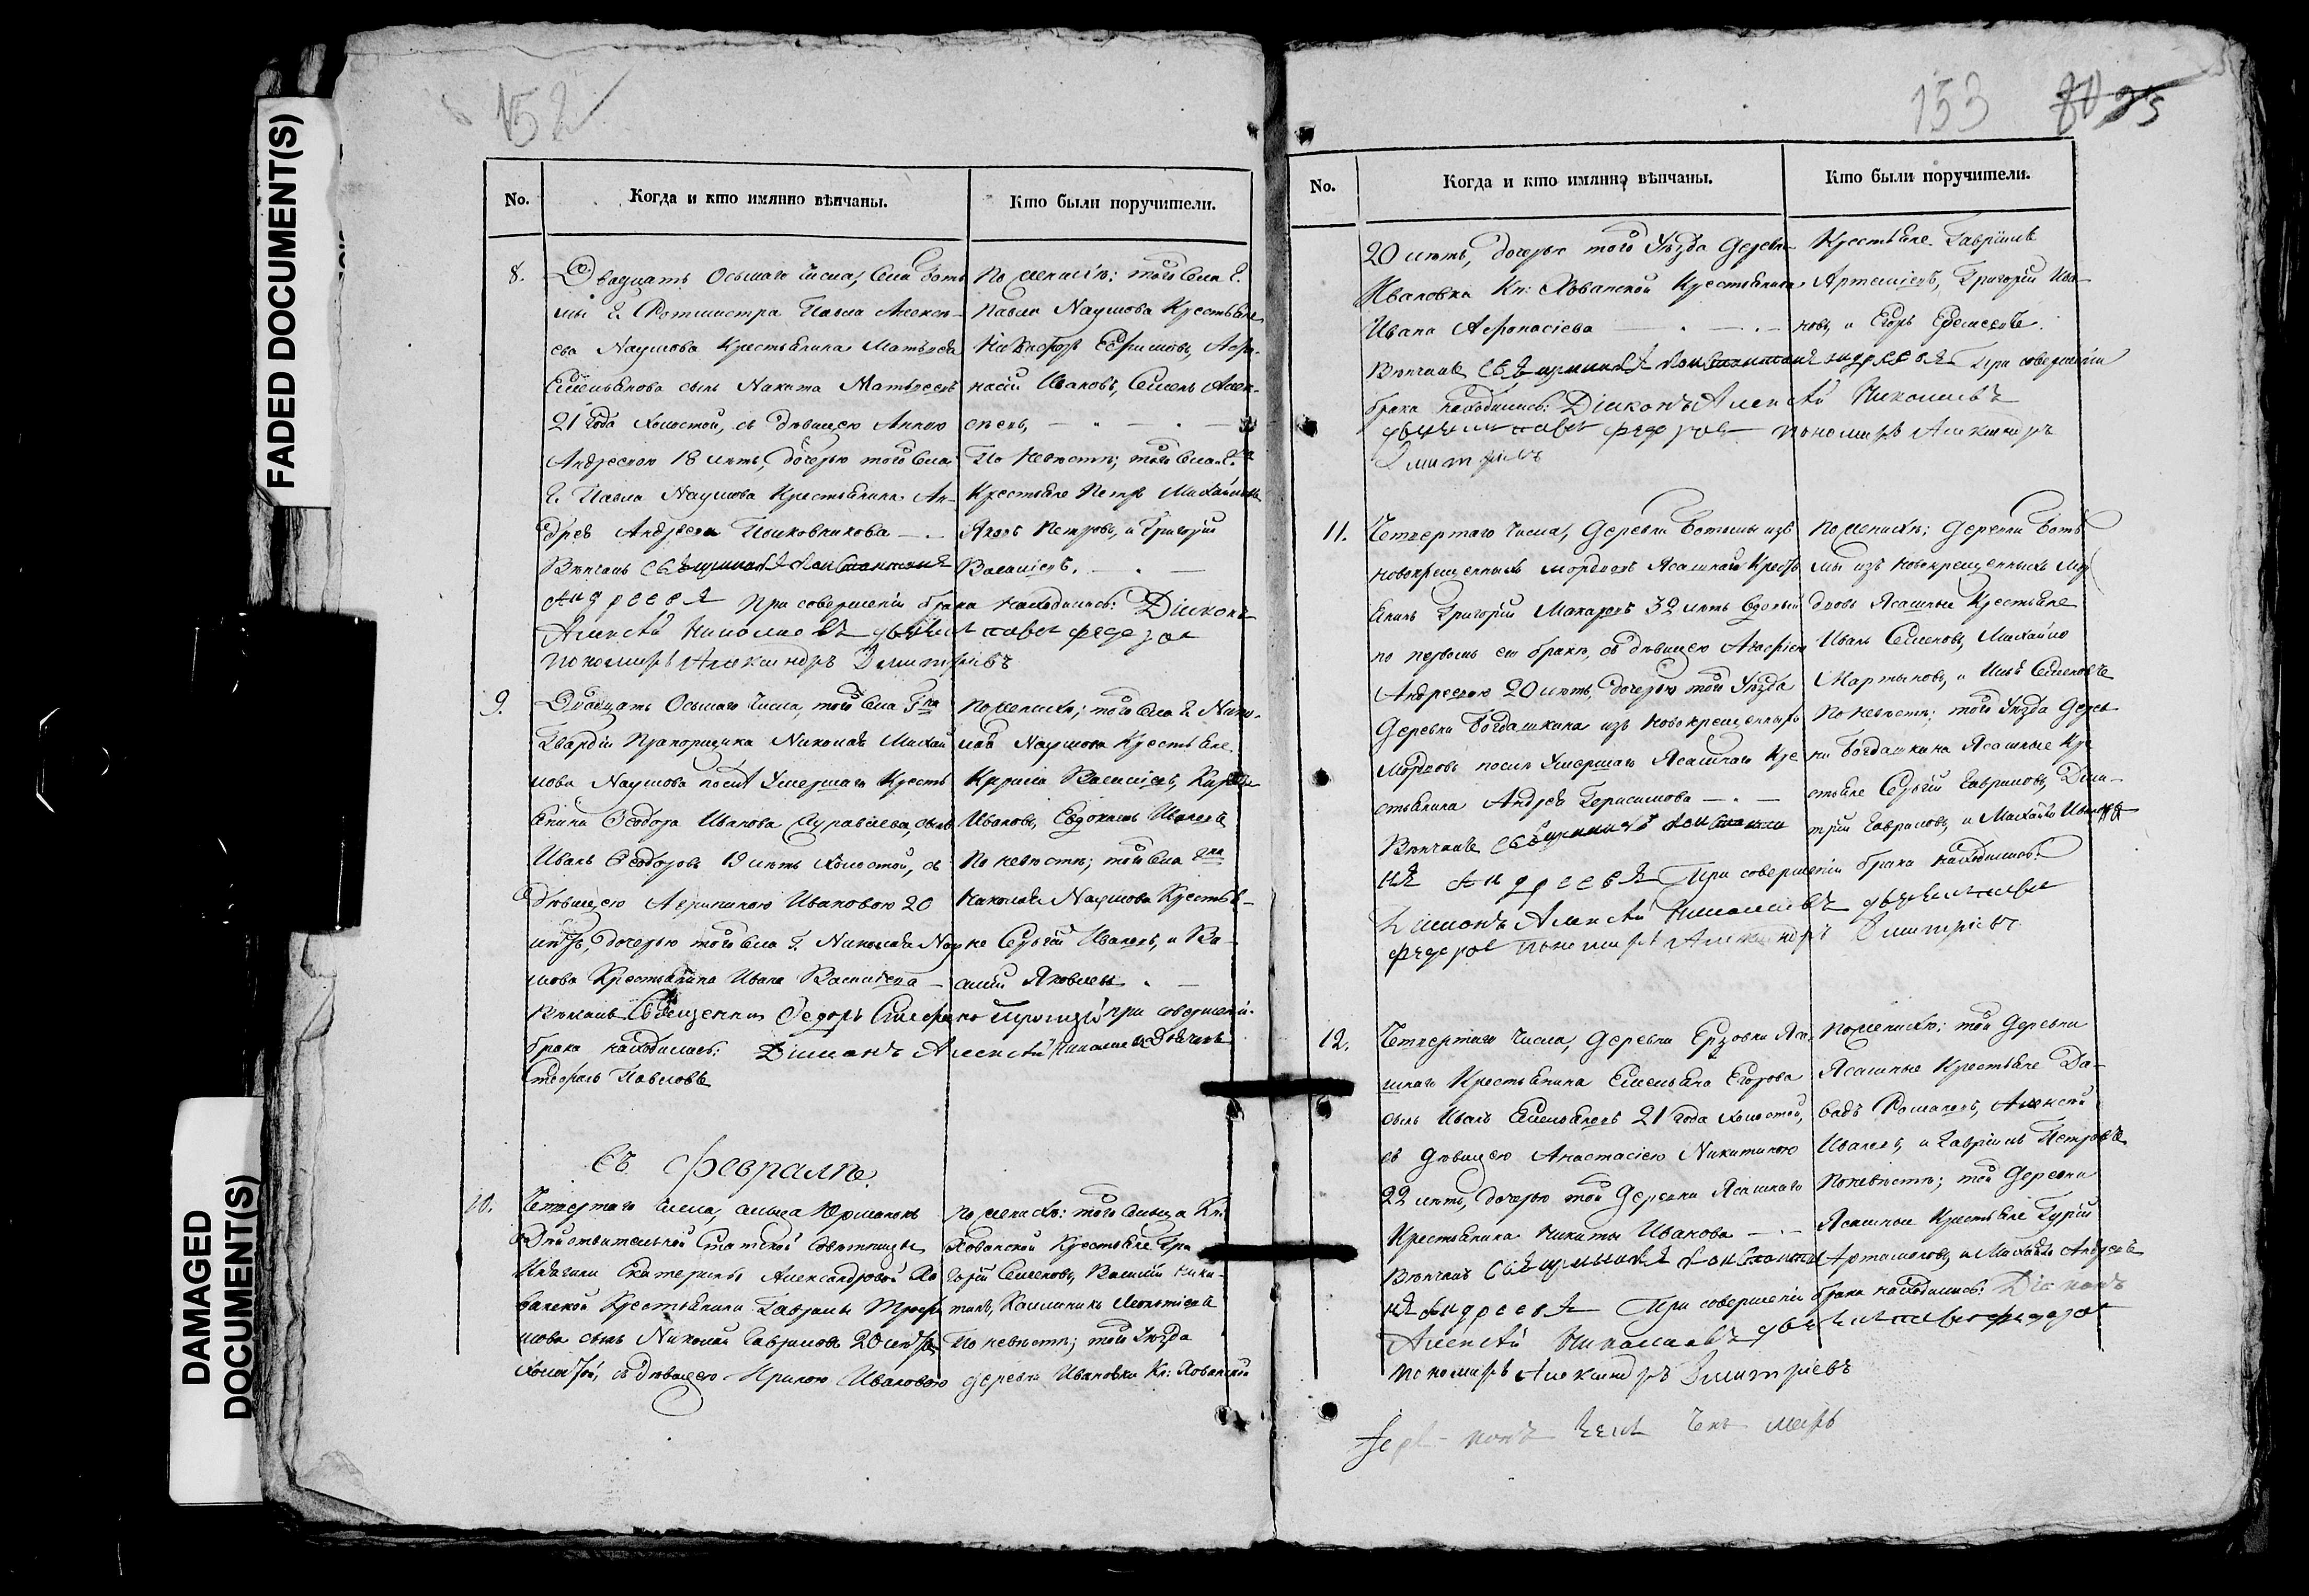 FADED DOCUMENT(S)
DAMAGED
DOCUMENT(S)
152
No.
Когда и кто имянно вѣнчаны.
Кто были поручители.
8.
Двадцать Осьмаго числа, Села Ботъ
мы Г. Ротмистра Павла Алексѣ-
ева Наумова Крестьянина Матвѣя
Емельянова сынъ Никита Матвѣевъ
21 года холостой, съ дѣвицею Анною
Андреевою 18 лѣтъ, дочерью того Села
Г. Павла Наумова Крестьянина Ан-
дрея Андреева
Вѣнчалъ Священникъ Константинъ
Андреевъ При совершеніи брака находились: Діаконъ
Алексѣй Николаевъ дьячекъ Павелъ Федоровъ
пономарь Александръ Димитріевъ
По женихѣ: того Села Г.
Павла Наумова Крестьяне
Никифоръ Ефимовъ, Афа-
насій Ивановъ, Семенъ Алек-
сѣевъ,
По невѣстѣ; того Села Г.
Крестьяне Петръ Михайловъ
Яковъ Петровъ, и Григорій
Василіевъ.
9.
Двадцать Осьмаго Числа, того Села Гна
Гвардіи Прапорщика Николая Михай
лова Наумова послѣ Умершаго Кресть
янина Феодора Иванова сынъ
Иванъ Феодоровъ 19 лѣтъ холостой, съ
дѣвицею Ивановою 20
лѣтъ, дочерью того Села Г. Николая Нау
мова Крестьянина Ивана Василіева
Вѣнчалъ Священникъ Федоръ при совершеніи
брака находились: Діаконъ Алексѣй Николаевъ дьячекъ
Стефанъ Павловъ
По женихѣ; того Села Г. Нико-
лая Наумова Крестьяне
Кирила Василіевъ,
Ивановъ, Евдокимъ Ивановъ
По невѣстѣ; того Села Гна
Николая Наумова Крестья-
не Сергѣй Ивановъ, и Ва-
силій Яковлевъ.
Въ Февралѣ.
10.
Четвертаго числа, сельца Юрманокъ
Дѣйствительной Статской Совѣтницы
Княгини Екатерины Александровой Хо
ванской Крестьянина Гаврилы Трофи
мова сынъ Николай Гавриловъ 20 лѣтъ
холостой, съ дѣвицею Ириною Ивановою
По женихѣ: того Сельца Кн:
Хованской Крестьяне Гри
горій Семеновъ, Василій Ники-
тинъ, Калинникъ Леонтіевъ
По невѣстѣ; того Уѣзда
деревни Ивановки Кн: Хованской
153 80 95
No.
Когда и кто имянно вѣнчаны.
Кто были поручители.
20 лѣтъ, дочерью того Уѣзда Деревни
Ивановки Кн: Хованской Крестьянина
Ивана Афонасіева
Вѣнчалъ Священникъ Константинъ Андреевъ При совершеніи
брака находились: Діаконъ Алексѣй Николаевъ
дьячекъ Павелъ Федоровъ пономарь Александръ
Димитріевъ
Крестьяне Гавріилъ
Артеміевъ, Григорій Ива-
новъ, и Егоръ Еремеевъ.
11.
Четвертаго Числа, Деревни Ботьмы изъ
новокрещенныхъ мордовъ Ясашной Кресть
янинъ Григорій Макаровъ 32 лѣтъ вдовый
по первомъ его бракѣ, съ дѣвицею Агафіею
Андреевою 20 лѣтъ, дочерью того Уѣзда
Деревни Богдашкина изъ новокрещенныхъ
Мордовъ послѣ Умершаго Ясашнаго Кре
стьянина Андрея Герасимова
Вѣнчалъ Священникъ Константи
нъ Андреевъ При совершеніи брака находились:
Діаконъ Алексѣй Николаевъ дьячекъ Павелъ
Федоровъ пономарь Александръ Димитріевъ
По женихѣ; Деревни Боть
мы изъ новокрещенныхъ Мор
довъ Ясашные Крестьяне
Иванъ Семеновъ, Михайло
Мартыновъ, и Илья Семеновъ
По невѣстѣ; того Уѣзда Дерев
ни Богдашкина Ясашные Кре
стьяне Сергѣй Гавриловъ, Дми-
трій Гавриловъ, и Михайло Ивановъ
12.
Четвертаго Числа, Деревни Ерзовки Яса
шнаго Крестьянина Емельяна Егорова
сынъ Иванъ Емельяновъ 21 года холостой,
съ дѣвицею Анастасіею Никитиною
22 лѣтъ, дочерью той Деревни Ясашнаго
Крестьянина Никиты Иванова
Вѣнчалъ Священникъ Константи
нъ Андреевъ При совершеніи брака находились: Діаконъ
Алексѣй Николаевъ дьячекъ Павелъ Федоровъ
пономарь Александръ Димитріевъ
По женихѣ: той Деревни
Ясашные Крестьяне Да-
видъ Романовъ, Алексѣй
Ивановъ, и Гавріилъ Петровъ
По невѣстѣ; той Деревни
Ясашные Крестьяне Гурій
Артамоновъ, и Михайло Андреевъ